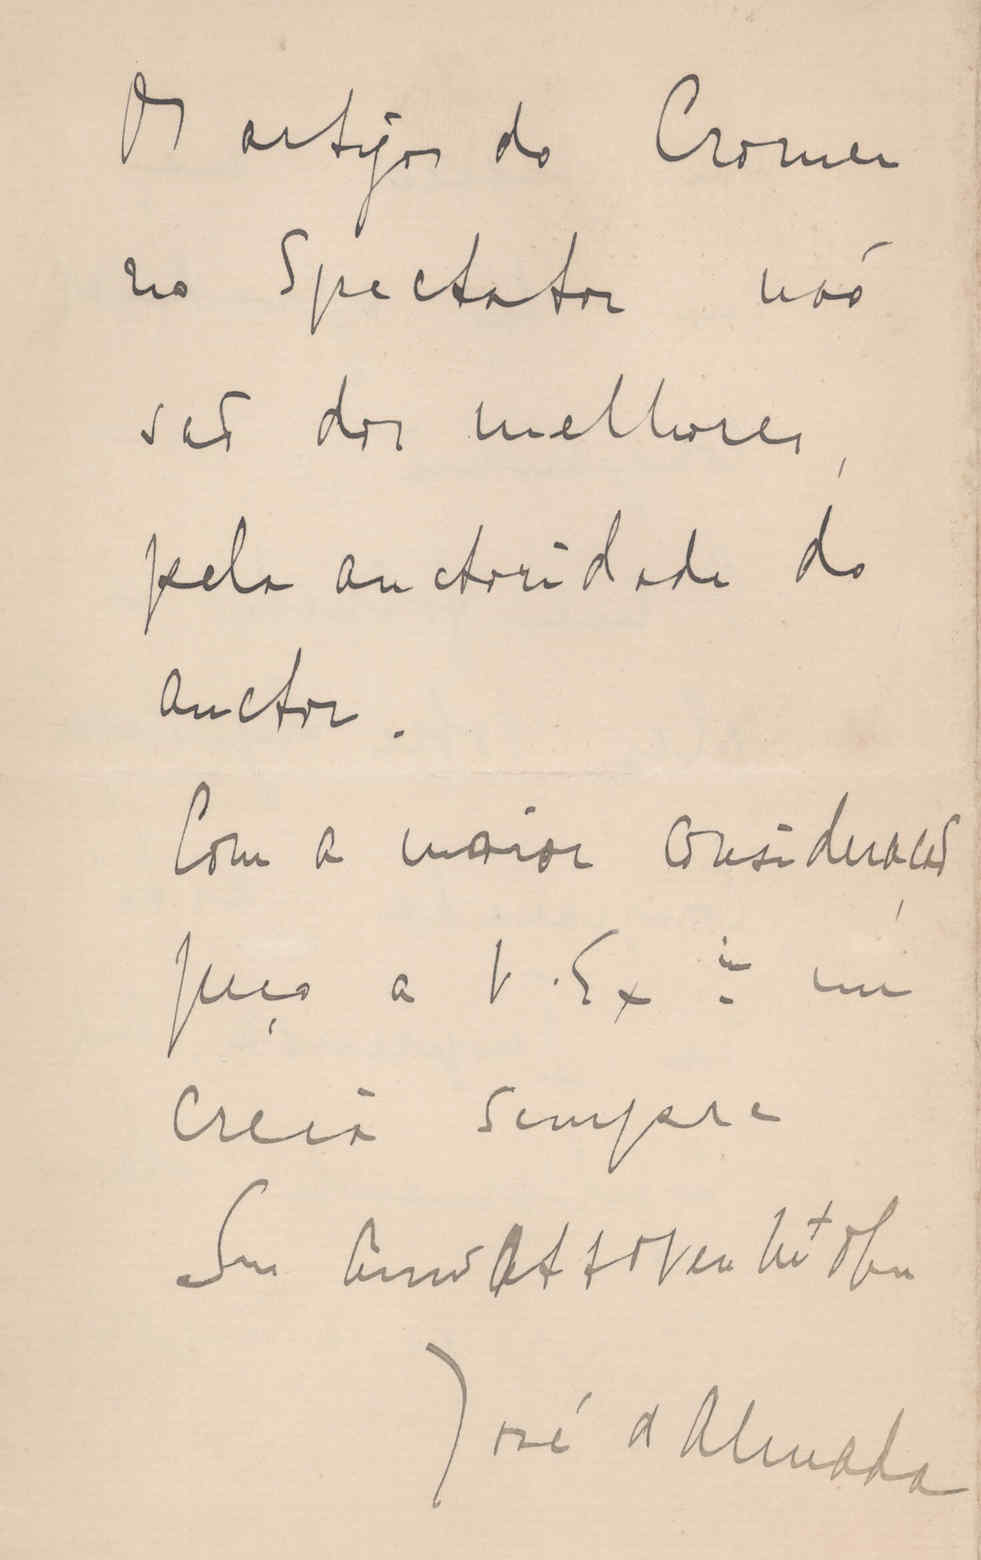 Os artigos do Cromer
no Spectator não
são dos melhores,
pela auctoridade do
auctor.
Com a maior consideração
peço a V. Ex.ª me
creia sempre
Seu Amº Attº Ven
José d'Almada